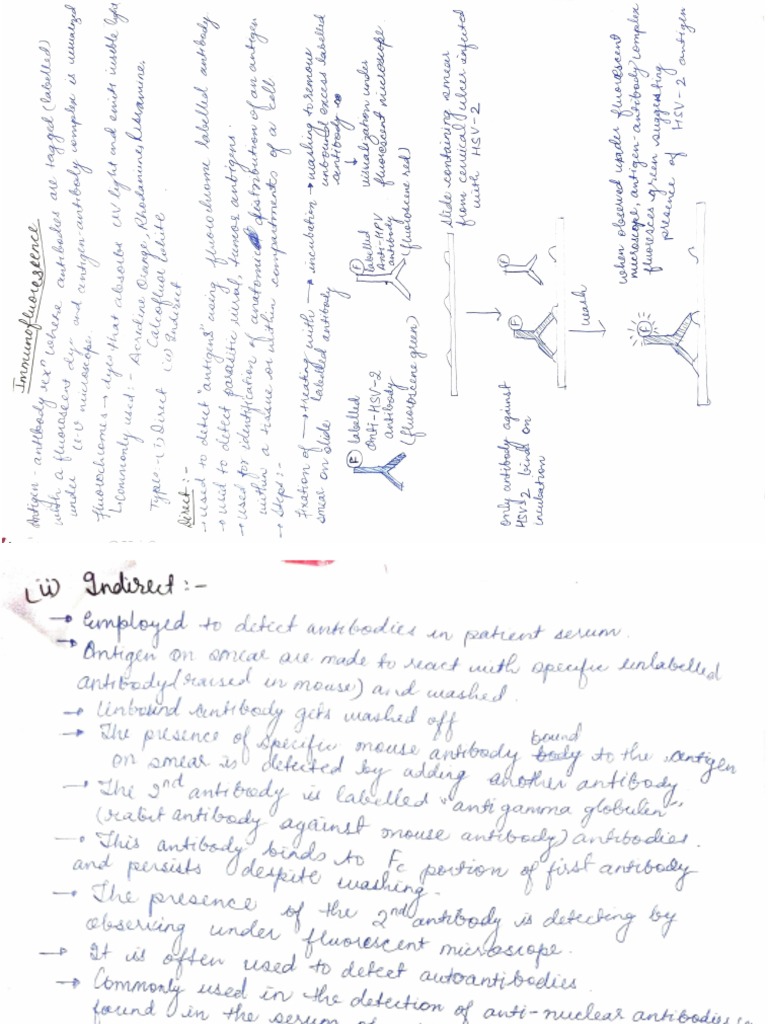 Immunofluorescence
Antigen-antibody rxn where antibodies are tagged (labelled)
with a fluorescent dye and antigen-antibody complex is visualized
under U-V microscope.
Fluorochromes → dyes that absorbs UV light and emits visible light
↳ Commonly used:- Acridine Orange, Rhodamine,
Calcofluor White
Types- (i) Direct (ii) Indirect
Direct:-
→ Used to detect "antigens" using fluorochrome labelled antibody
→ used to detect parasitic, viral, tumor antigens.
→ Used for identification of anatomic distribution of an antigen
within a tissue or within compartments of a cell
→ Steps:-
Fixation of → treating with → incubation → washing to remove
smear on slide labelled antibody unbound excess labelled
antibody
↓
visualization under
fluorescent microscope.
F labelled
Anti-HSV-2
antibody
(fluorescene green)
F
labelled
Anti-HPV
antibody
(fluorescene red)
slide containing smear
from cervical ulcer infected
with HSV-2
Only antibody against
HSV-2 binds on
incubation
F
F
wash
F
When observed under fluorescent
microscope, antigen-antibody complex
fluoresces green suggesting
presence of HSV-2 antigen
(ii) Indirect:-
→ Employed to detect antibodies in patient serum.
→ Antigen on smear are made to react with specific unlabelled
antibody (raised in mouse) and washed.
→ Unbound antibody gets washed off
bound
→ The presence of specific mouse antibody body to the antigen
on smear is detected by adding another antibody
→ The 2nd antibody is labelled "antigamma globulin"
(rabit antibody against mouse antibody) antibodies.
→ This antibody binds to Fc portion of first antibody
and persists despite washing.
→ The presence of the 2nd antibody is detecting by
observing under fluorescent microscope.
→ It is often used to detect autoantibodies.
→ Commonly used in the detection of anti-nuclear antibodies
found in the serum of